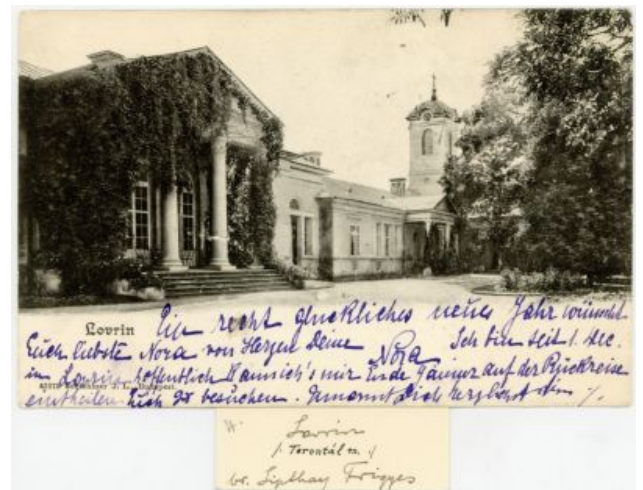 Lovrin
Ein recht glückliches neues Jahr wünscht
Euch liebste Nora von Herzen Deine Nora Ich bin seit 1. Dec.
in Lovrin, hoffentlich kann ich's mir Ende Jänner auf der Rückreise
eintheilen Euch zu besuchen.
Budapest.
Lovrin
/: Torontál m. :/
br. Lipthay Frigyes